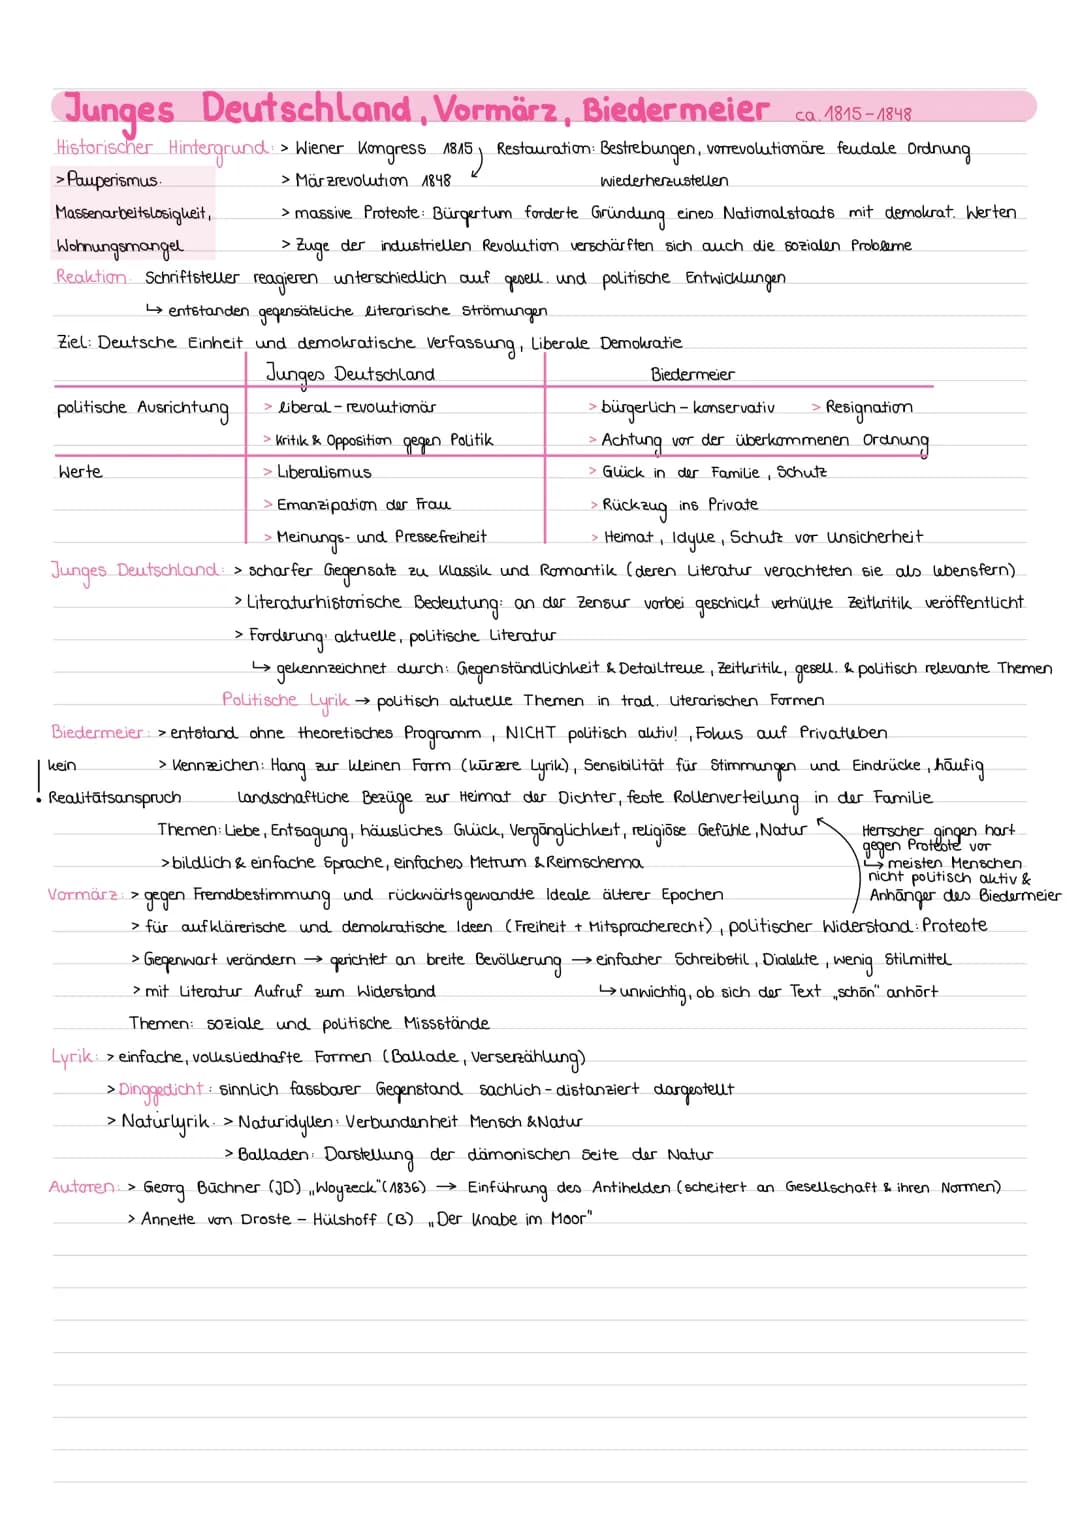 Junges Deutschland, Vormärz, Biedermeier ca. 1815-1848
Historischer Hintergrund: > Wiener Kongress 1815, Restauration: Bestrebungen, vorrevolutionäre feudale Ordnung
> Pauperismus: > Märzrevolution 1848 wiederherzustellen
Massenarbeitslosigkeit, > massive Proteste: Bürgertum forderte Gründung eines Nationalstaats mit demokrat. Werten
Wohnungsmangel > Zuge der industriellen Revolution verschärften sich auch die sozialen Probleme
Reaktion: Schriftsteller reagieren unterschiedlich auf gesell. und politische Entwicklungen
↳ entstanden gegensätzliche literarische Strömungen
Ziel: Deutsche Einheit und demokratische Verfassung, Liberale Demokratie
Junges Deutschland Biedermeier
politische Ausrichtung > liberal-revolutionär > bürgerlich-konservativ > Resignation
> Kritik & Opposition gegen Politik > Achtung vor der überkommenen Ordnung
Werte > Liberalismus > Glück in der Familie, Schutz
> Emanzipation der Frau > Rückzug ins Private
> Meinungs- und Pressefreiheit > Heimat, Idylle, Schutz vor Unsicherheit
Junges Deutschland: > scharfer Gegensatz zu Klassik und Romantik (deren Literatur verachteten sie als lebensfern)
> Literaturhistorische Bedeutung: an der Zensur vorbei geschickt verhüllte Zeitkritik veröffentlicht
> Forderung: aktuelle, politische Literatur
↳ gekennzeichnet durch: Gegenständlichkeit & Detailtreue, Zeitkritik, gesell. & politisch relevante Themen
Politische Lyrik → politisch aktuelle Themen in trad. literarischen Formen
Biedermeier: > entstand ohne theoretisches Programm, NICHT politisch aktiv!, Fokus auf Privatleben
! kein > Kennzeichen: Hang zur kleinen Form (kürzere Lyrik), Sensibilität für Stimmungen und Eindrücke, häufig
Realitätsanspruch landschaftliche Bezüge zur Heimat der Dichter, feste Rollenverteilung in der Familie
Themen: Liebe, Entsagung, häusliches Glück, Vergänglichkeit, religiöse Gefühle, Natur
> bildlich & einfache Sprache, einfaches Metrum & Reimschema
Herrscher gingen hart
gegen Proteste vor
↳ meisten Menschen
nicht politisch aktiv &
Anhänger des Biedermeier
Vormärz: > gegen Fremdbestimmung und rückwärtsgewandte Ideale älterer Epochen
> für aufklärerische und demokratische Ideen (Freiheit + Mitspracherecht), politischer Widerstand: Proteste
> Gegenwart verändern → gerichtet an breite Bevölkerung → einfacher Schreibstil, Dialekte, wenig Stilmittel
> mit Literatur Aufruf zum Widerstand ↳ unwichtig, ob sich der Text „schön" anhört
Themen: soziale und politische Missstände
Lyrik: > einfache, volksliedhafte Formen (Ballade, Verserzählung)
> Dinggedicht: sinnlich fassbarer Gegenstand sachlich-distanziert dargestellt
> Naturlyrik: > Naturidyllen: Verbundenheit Mensch & Natur
> Balladen: Darstellung der dämonischen Seite der Natur
Autoren: > Georg Büchner (JD) „Woyzeck" (1836) → Einführung des Antihelden (scheitert an Gesellschaft & ihren Normen)
> Annette von Droste - Hülshoff (B) „Der Knabe im Moor"